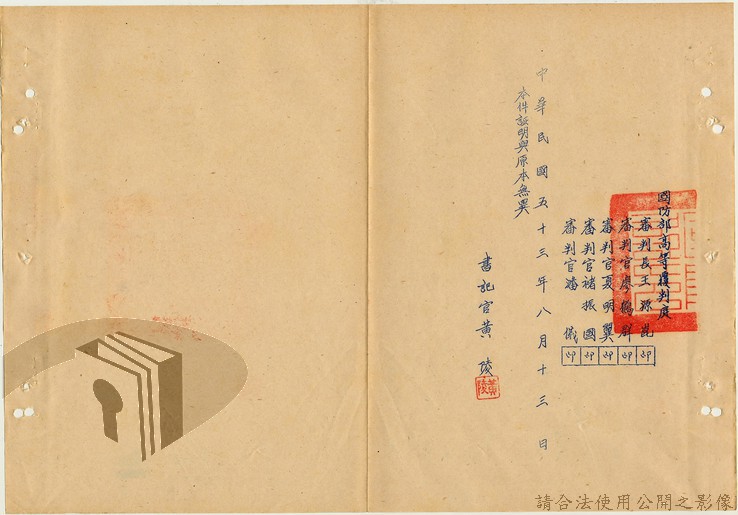 國防部高等覆判庭
審判長王 印
審判官廖鶴群 印
審判官夏明翼 印
審判官褚振國 印
審判官潘儀 印
中華民國五十三年八月十三日
本件証明與原本無異
書記官黃陵
黃陵
請合法使用公開之影像